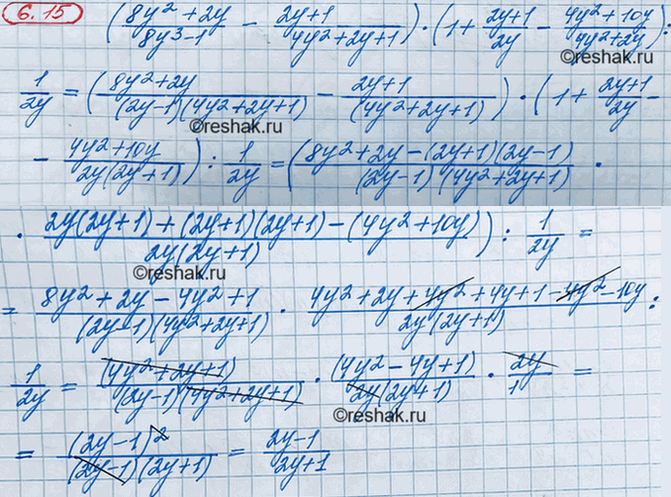 6.15 ((8y²+2y)/(8y³-1) - (2y+1)/(4y²+2y+1)) · (1+ (2y+1)/(2y) - (4y²+10y)/(4y²+2y)) :
1/(2y) = ((8y²+2y)/((2y-1)(4y²+2y+1)) - (2y+1)/((4y²+2y+1))) · (1+ (2y+1)/(2y) -
©reshak.ru
- (4y²+10y)/(2y(2y+1))) : 1/(2y) = ((8y²+2y-(2y+1)(2y-1))/((2y-1)(4y²+2y+1)) ·
· (2y(2y+1)+(2y+1)(2y+1)-(4y²+10y))/(2y(2y+1))) : 1/(2y) =
©reshak.ru
= (8y²+2y-4y²+1)/((2y-1)(4y²+2y+1)) · (4y²+2y+4y²+4y+1-4y²-10y)/(2y(2y+1)) :
1/(2y) = (4y²+2y+1)/((2y-1)(4y²+2y+1)) · (4y²-4y+1)/(2y(2y+1)) · 2y/1 =
©reshak.ru
= (2y-1)²/((2y-1)(2y+1)) = (2y-1)/(2y+1)